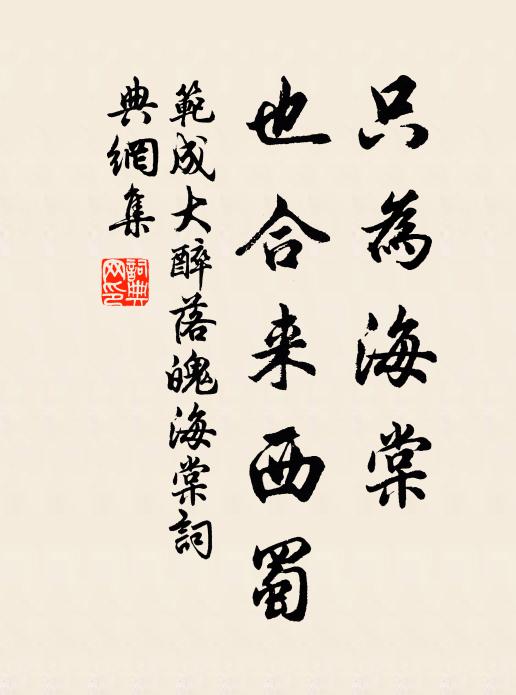 只為海棠
也合来西蜀
範成大醉落魄海棠詞
典網集
詞典
网印